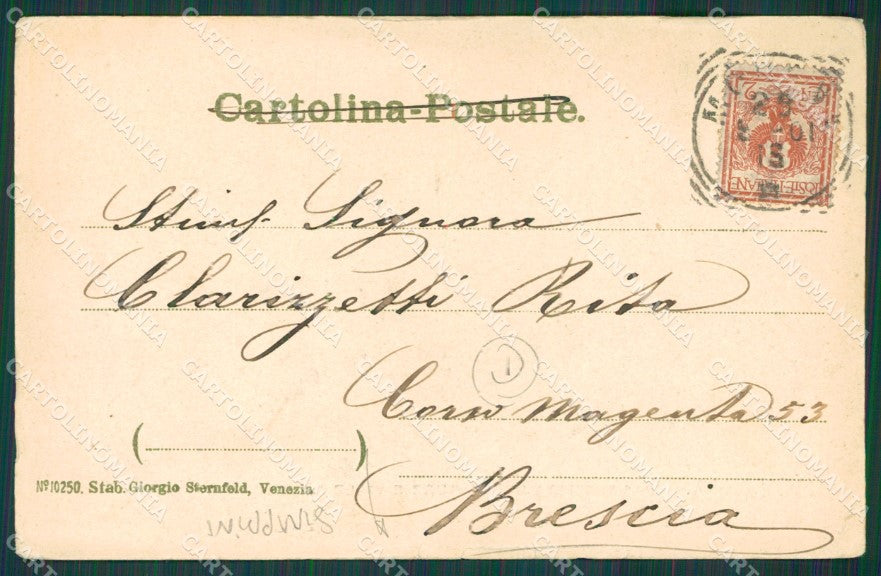 Cartolina-Postale.
Stimª Signora
Clarizzetti Rita
Corso Magenta 53
Brescia
( )
Nº 10250. Stab. Giorgio Sternfeld, Venezia
POSTE-ITALIANE
15
1
CARTOLINOMANIA